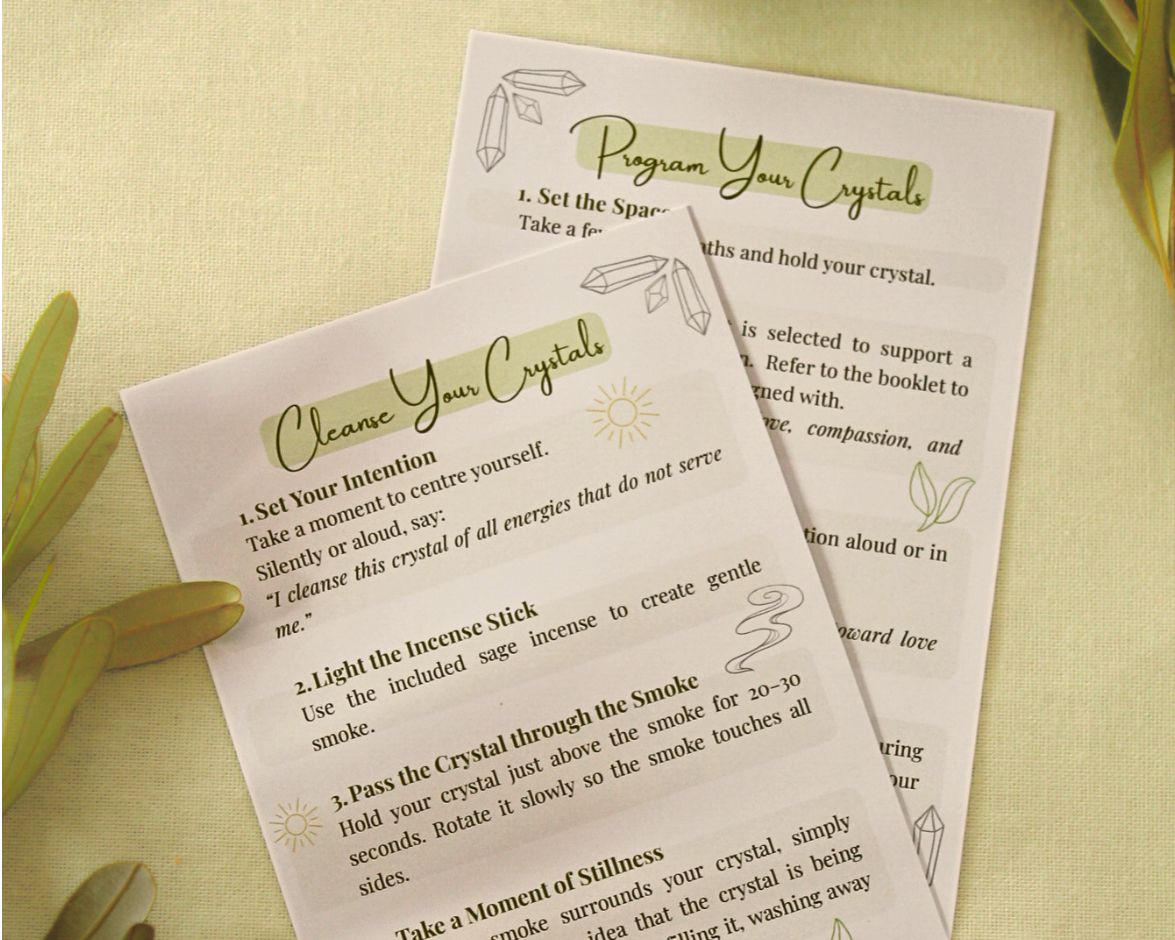 Program Your Crystals
1. Set the Space
Take a few aths and hold your crystal.
is selected to support a
Refer to the booklet to
gned with.
ove, compassion, and
tion aloud or in
oward love
uring
our
Cleanse Your Crystals
1. Set Your Intention
Take a moment to centre yourself.
Silently or aloud, say:
“I cleanse this crystal of all energies that do not serve
me.”
2. Light the Incense Stick
Use the included sage incense to create gentle
smoke.
3. Pass the Crystal through the Smoke
Hold your crystal just above the smoke for 20–30
seconds. Rotate it slowly so the smoke touches all
sides.
Take a Moment of Stillness
smoke surrounds your crystal, simply
idea that the crystal is being
filling it, washing away